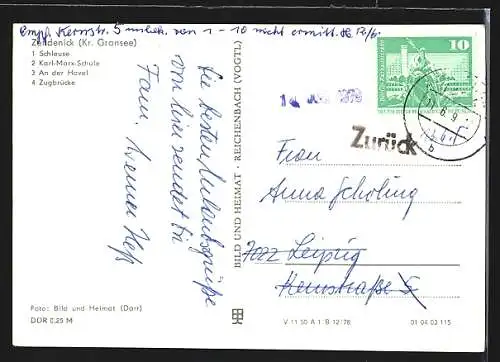 Empf. Kernstr. 5 unbek. von 1 - 10 nicht ermitt.
Zehdenick (Kr. Gransee)
1 Schleuse
2 Karl-Marx-Schule
3 An der Havel
4 Zugbrücke
Die besten Urlaubsgrüße
von hier sendet Dir
Fam. Werner Heß
Foto: Bild und Heimat (Darr)
DDR 0,25 M
BILD UND HEIMAT · REICHENBACH (VOGTL)
10
1979
Zurück
Frau
Anna Scholing
7022 Leipzig
Kernstraße 5
V 11 50 A 1 B 12/78
01 04 02 115